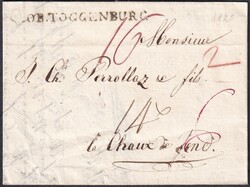 OB.TOGGENBURG.
16
Monsieur
2
J. Ch. Perrollaz & fils.
14
6
la Chaux de fond.